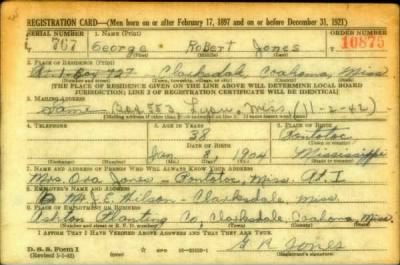 REGISTRATION CARD—(Men born on or after February 17, 1897 and on or before December 31, 1921)
SERIAL NUMBER 1. NAME (Print) ORDER NUMBER
T 767 George Robert Jones 10875
2. PLACE OF RESIDENCE (Print)
Rt 1-Box 727 Clarksdale, Coahoma, Miss
[THE PLACE OF RESIDENCE GIVEN ON THE LINE ABOVE WILL DETERMINE LOCAL BOARD
JURISDICTION; LINE 2 OF REGISTRATION CERTIFICATE WILL BE IDENTICAL]
3. MAILING ADDRESS
Same Box 553 Lyon, Miss, (11-2-42)
[Mailing address if other than place indicated on line 2. If same insert word same]
4. TELEPHONE 5. AGE IN YEARS 6. PLACE OF BIRTH
38 Pontotoc
DATE OF BIRTH
Jan 1904 Mississippi
(Exchange) (Number) (Mo.) (Day) (Yr.) (State or country)
7. NAME AND ADDRESS OF PERSON WHO WILL ALWAYS KNOW YOUR ADDRESS
Mrs. Ora Jones - Pontotoc, Miss. Rt. I
8. EMPLOYER'S NAME AND ADDRESS
Mr. J. E. Wilson - Clarksdale, Miss.
9. PLACE OF EMPLOYMENT OR BUSINESS
Ashton Planting Co, Clarksdale, Coahoma, Miss.
(Number and street or R. F. D. number) (Town) (County) (State)
I AFFIRM THAT I HAVE VERIFIED ABOVE ANSWERS AND THAT THEY ARE TRUE.
D. S. S. Form 1
(Revised 1-1-42) (over)
G R Jones
(Registrant's signature)